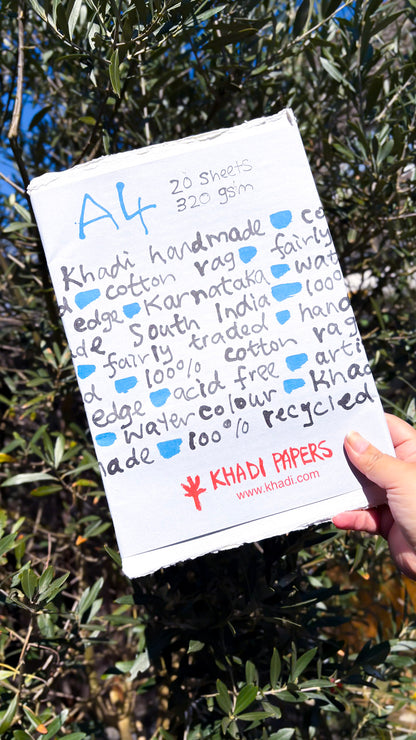 A4
20 sheets
320 gsm
Khadi handmade co
d cotton rag fairly
edge Karnataka wat
de South India 100%
fairly traded hand
d 100% cotton rag
edge acid free arti
water colour Khad
made 100% recycled
KHADI PAPERS
www.khadi.com